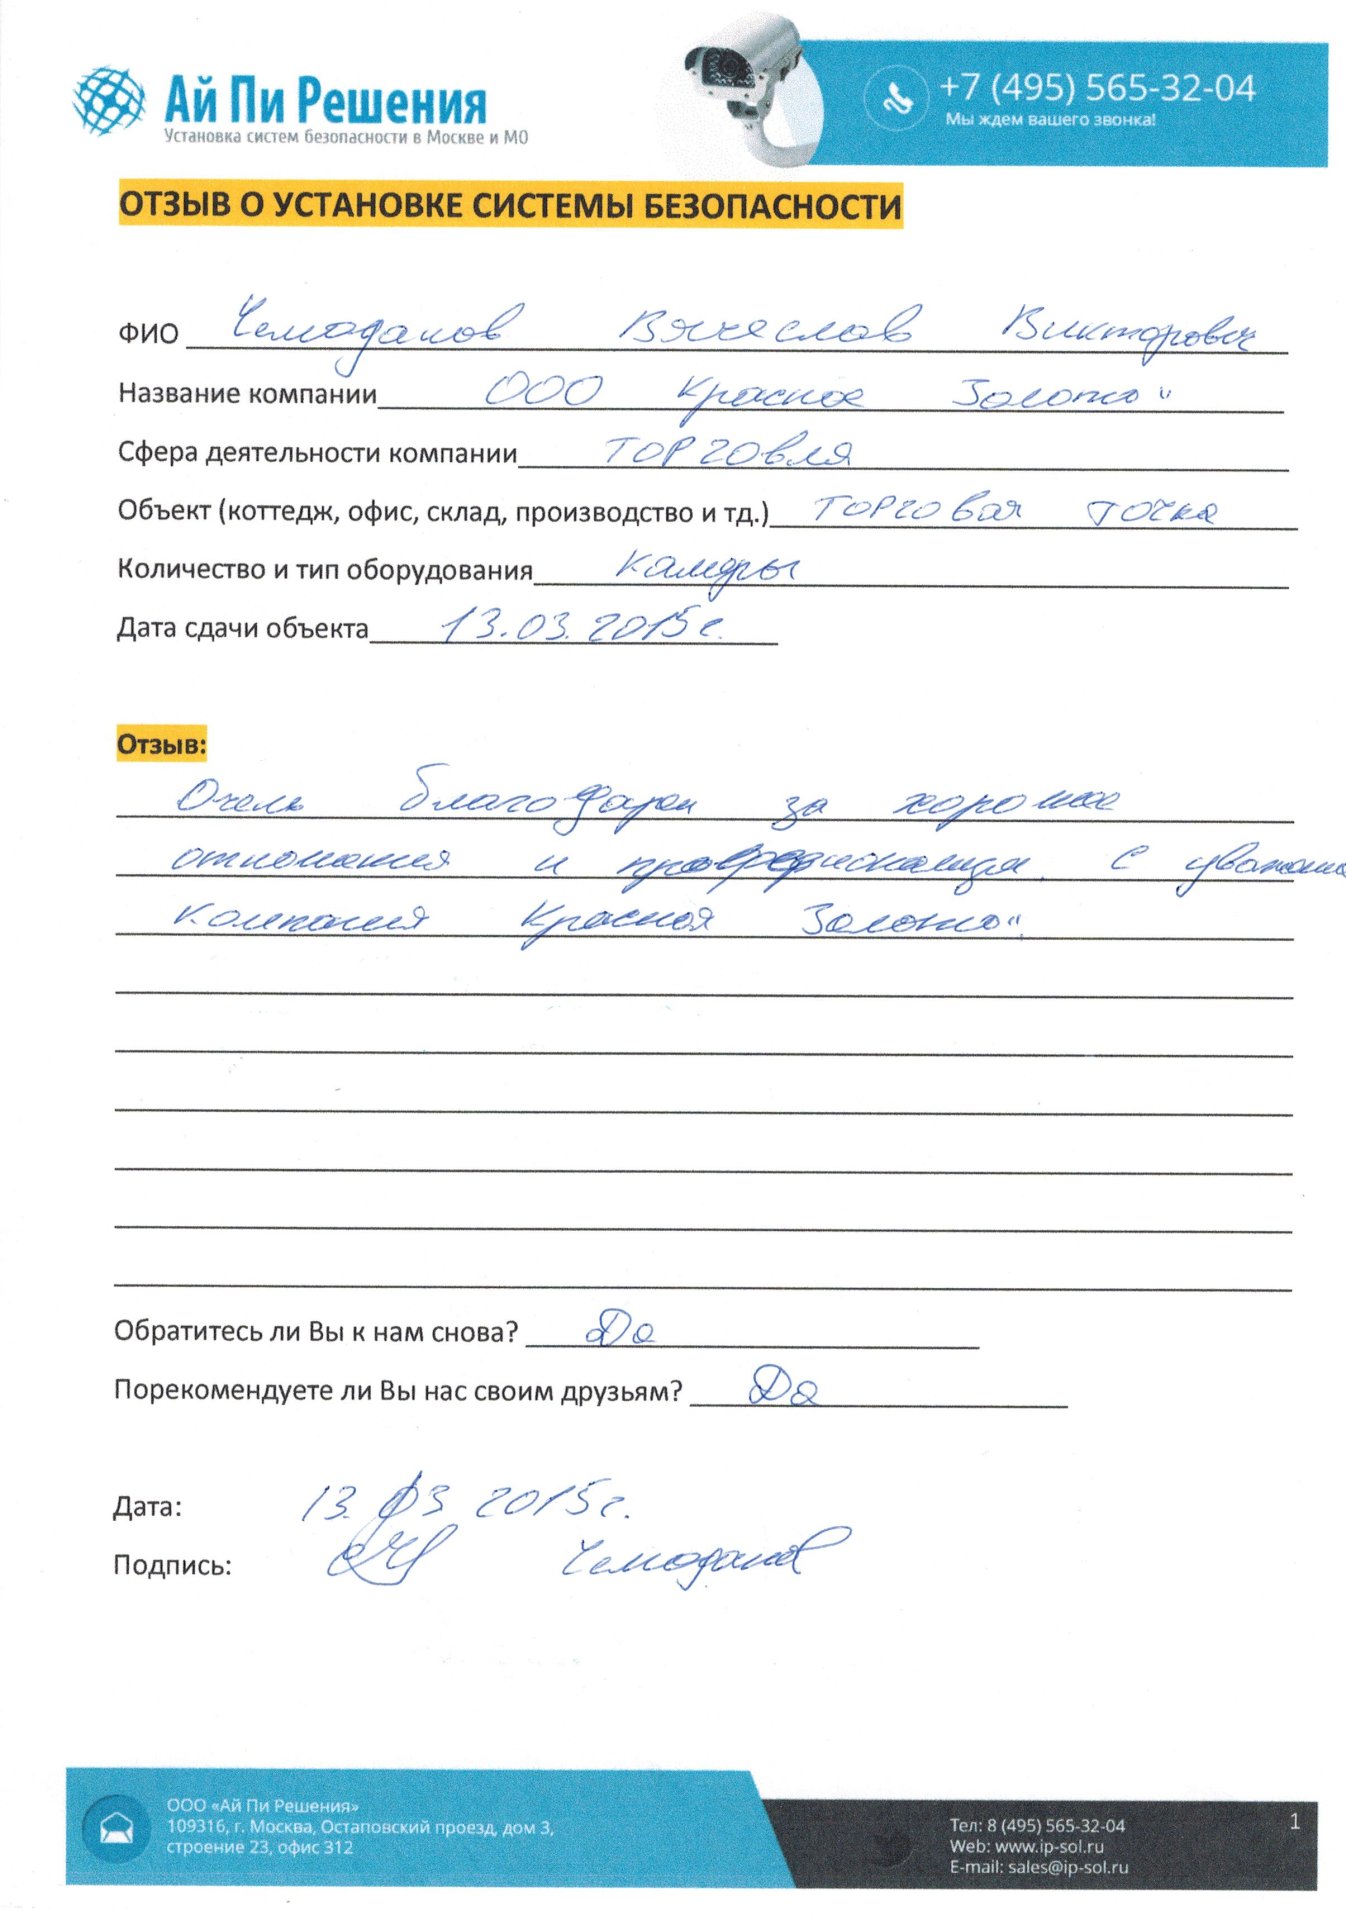 Ай Пи Решения
Установка систем безопасности в Москве и МО
+7 (495) 565-32-04
Мы ждем вашего звонка!
ОТЗЫВ О УСТАНОВКЕ СИСТЕМЫ БЕЗОПАСНОСТИ
ФИО Чемоданов Вячеслав Викторович
Название компании ООО Красное Золото"
Сфера деятельности компании ТОРГОВЛЯ
Объект (коттедж, офис, склад, производство и тд.) ТОРГОВАЯ ТОЧКА
Количество и тип оборудования Камеры
Дата сдачи объекта 13.03.2015г.
Отзыв:
Очень благодарен за хорошие
отношения и С уважение
Компания Красная Золото".
Обратитесь ли Вы к нам снова? Да
Порекомендуете ли Вы нас своим друзьям? Да
Дата: 13.03 2015г.
Подпись: Чемоданов
ООО «Ай Пи Решения»
109316, г. Москва, Остаповский проезд, дом 3,
строение 23, офис 312
Тел: 8 (495) 565-32-04
Web: www.ip-sol.ru
E-mail: sales@ip-sol.ru
1